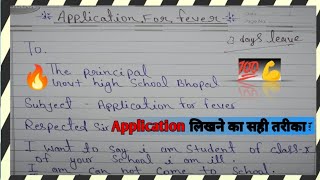 Application For fever
2 days leave
To,
The principal
Govt high School Bhopal
Subject - Application for fever
Respected Sir
Application लिखने का सही तरीका
I want to say i am Student of class-x
of your School i am ill.
I am can not come to School.